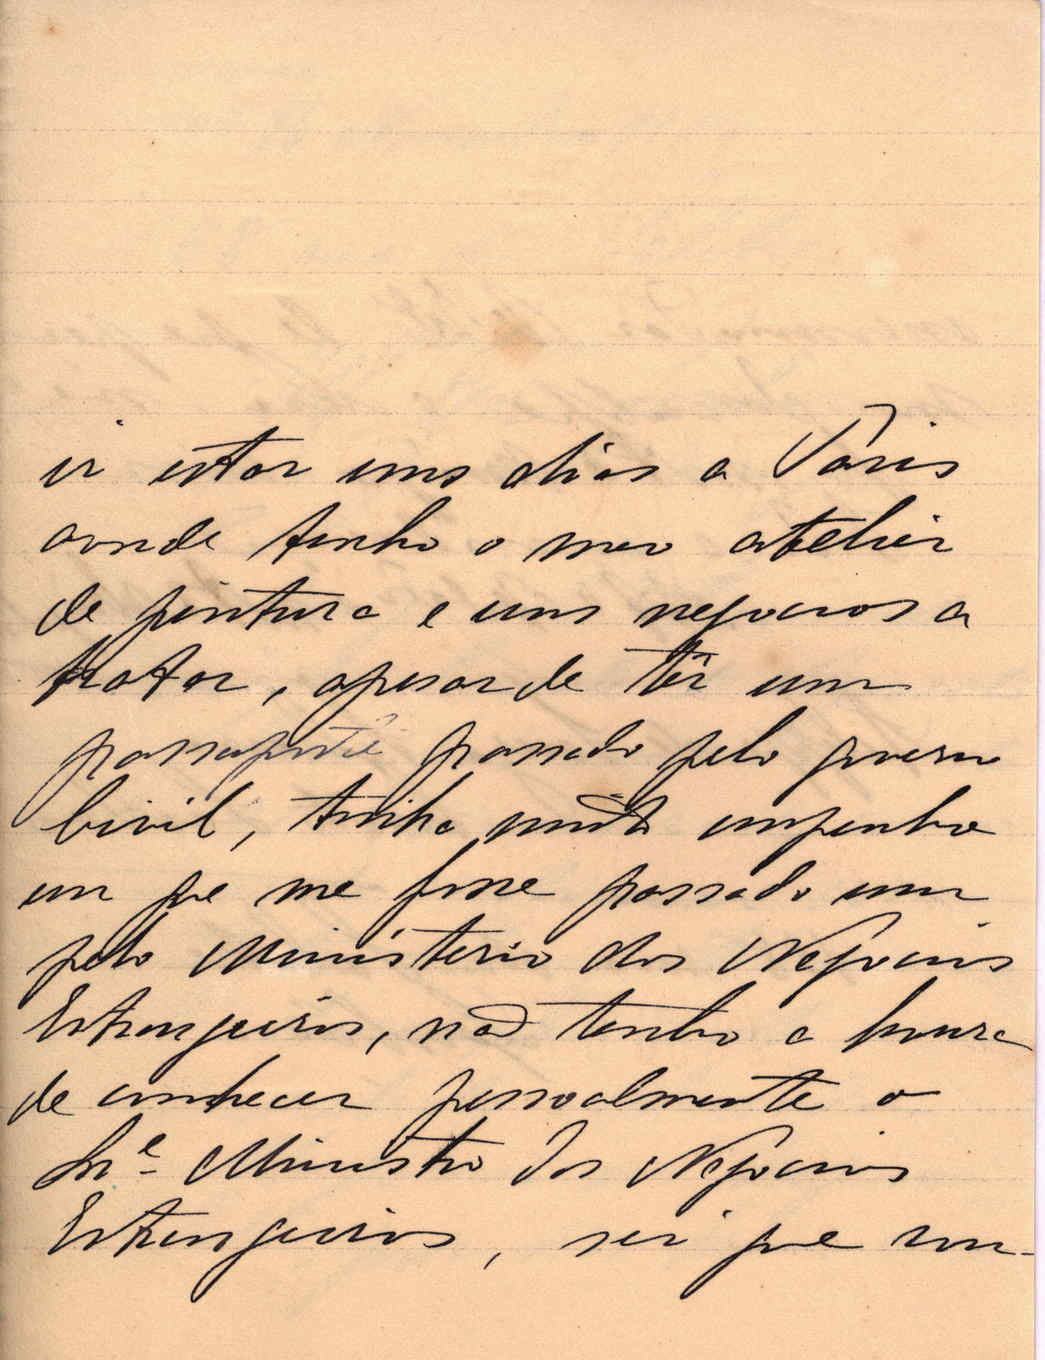 ir estar uns dias a Páris
aonde tenho o meu atelier
de pintura e uns negocios a
tratar, apesar de têr um
passaporte passado pelo governo
Civil, tinha muito empenho
em que me fosse passado um
pelo Ministerio dos Negocios
Estrangeiros, não tenho a honra
de conhecer pessoalmente o
Snr. Ministro dos Negocios
Estrangeiros, sei que